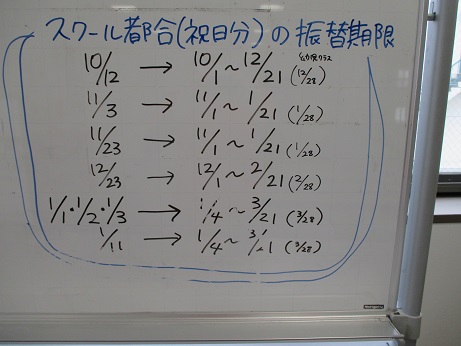 スクール都合(祝日分)の振替期限
10/12 → 10/1～12/21 (12/28)
11/3 → 11/1～1/21 (1/28)
11/23 → 11/1～1/21 (1/28)
12/23 → 12/1～2/21 (2/28)
1/1・1/2・1/3 → 1/4～3/21 (3/28)
1/11 → 1/4～3/21 (3/28)